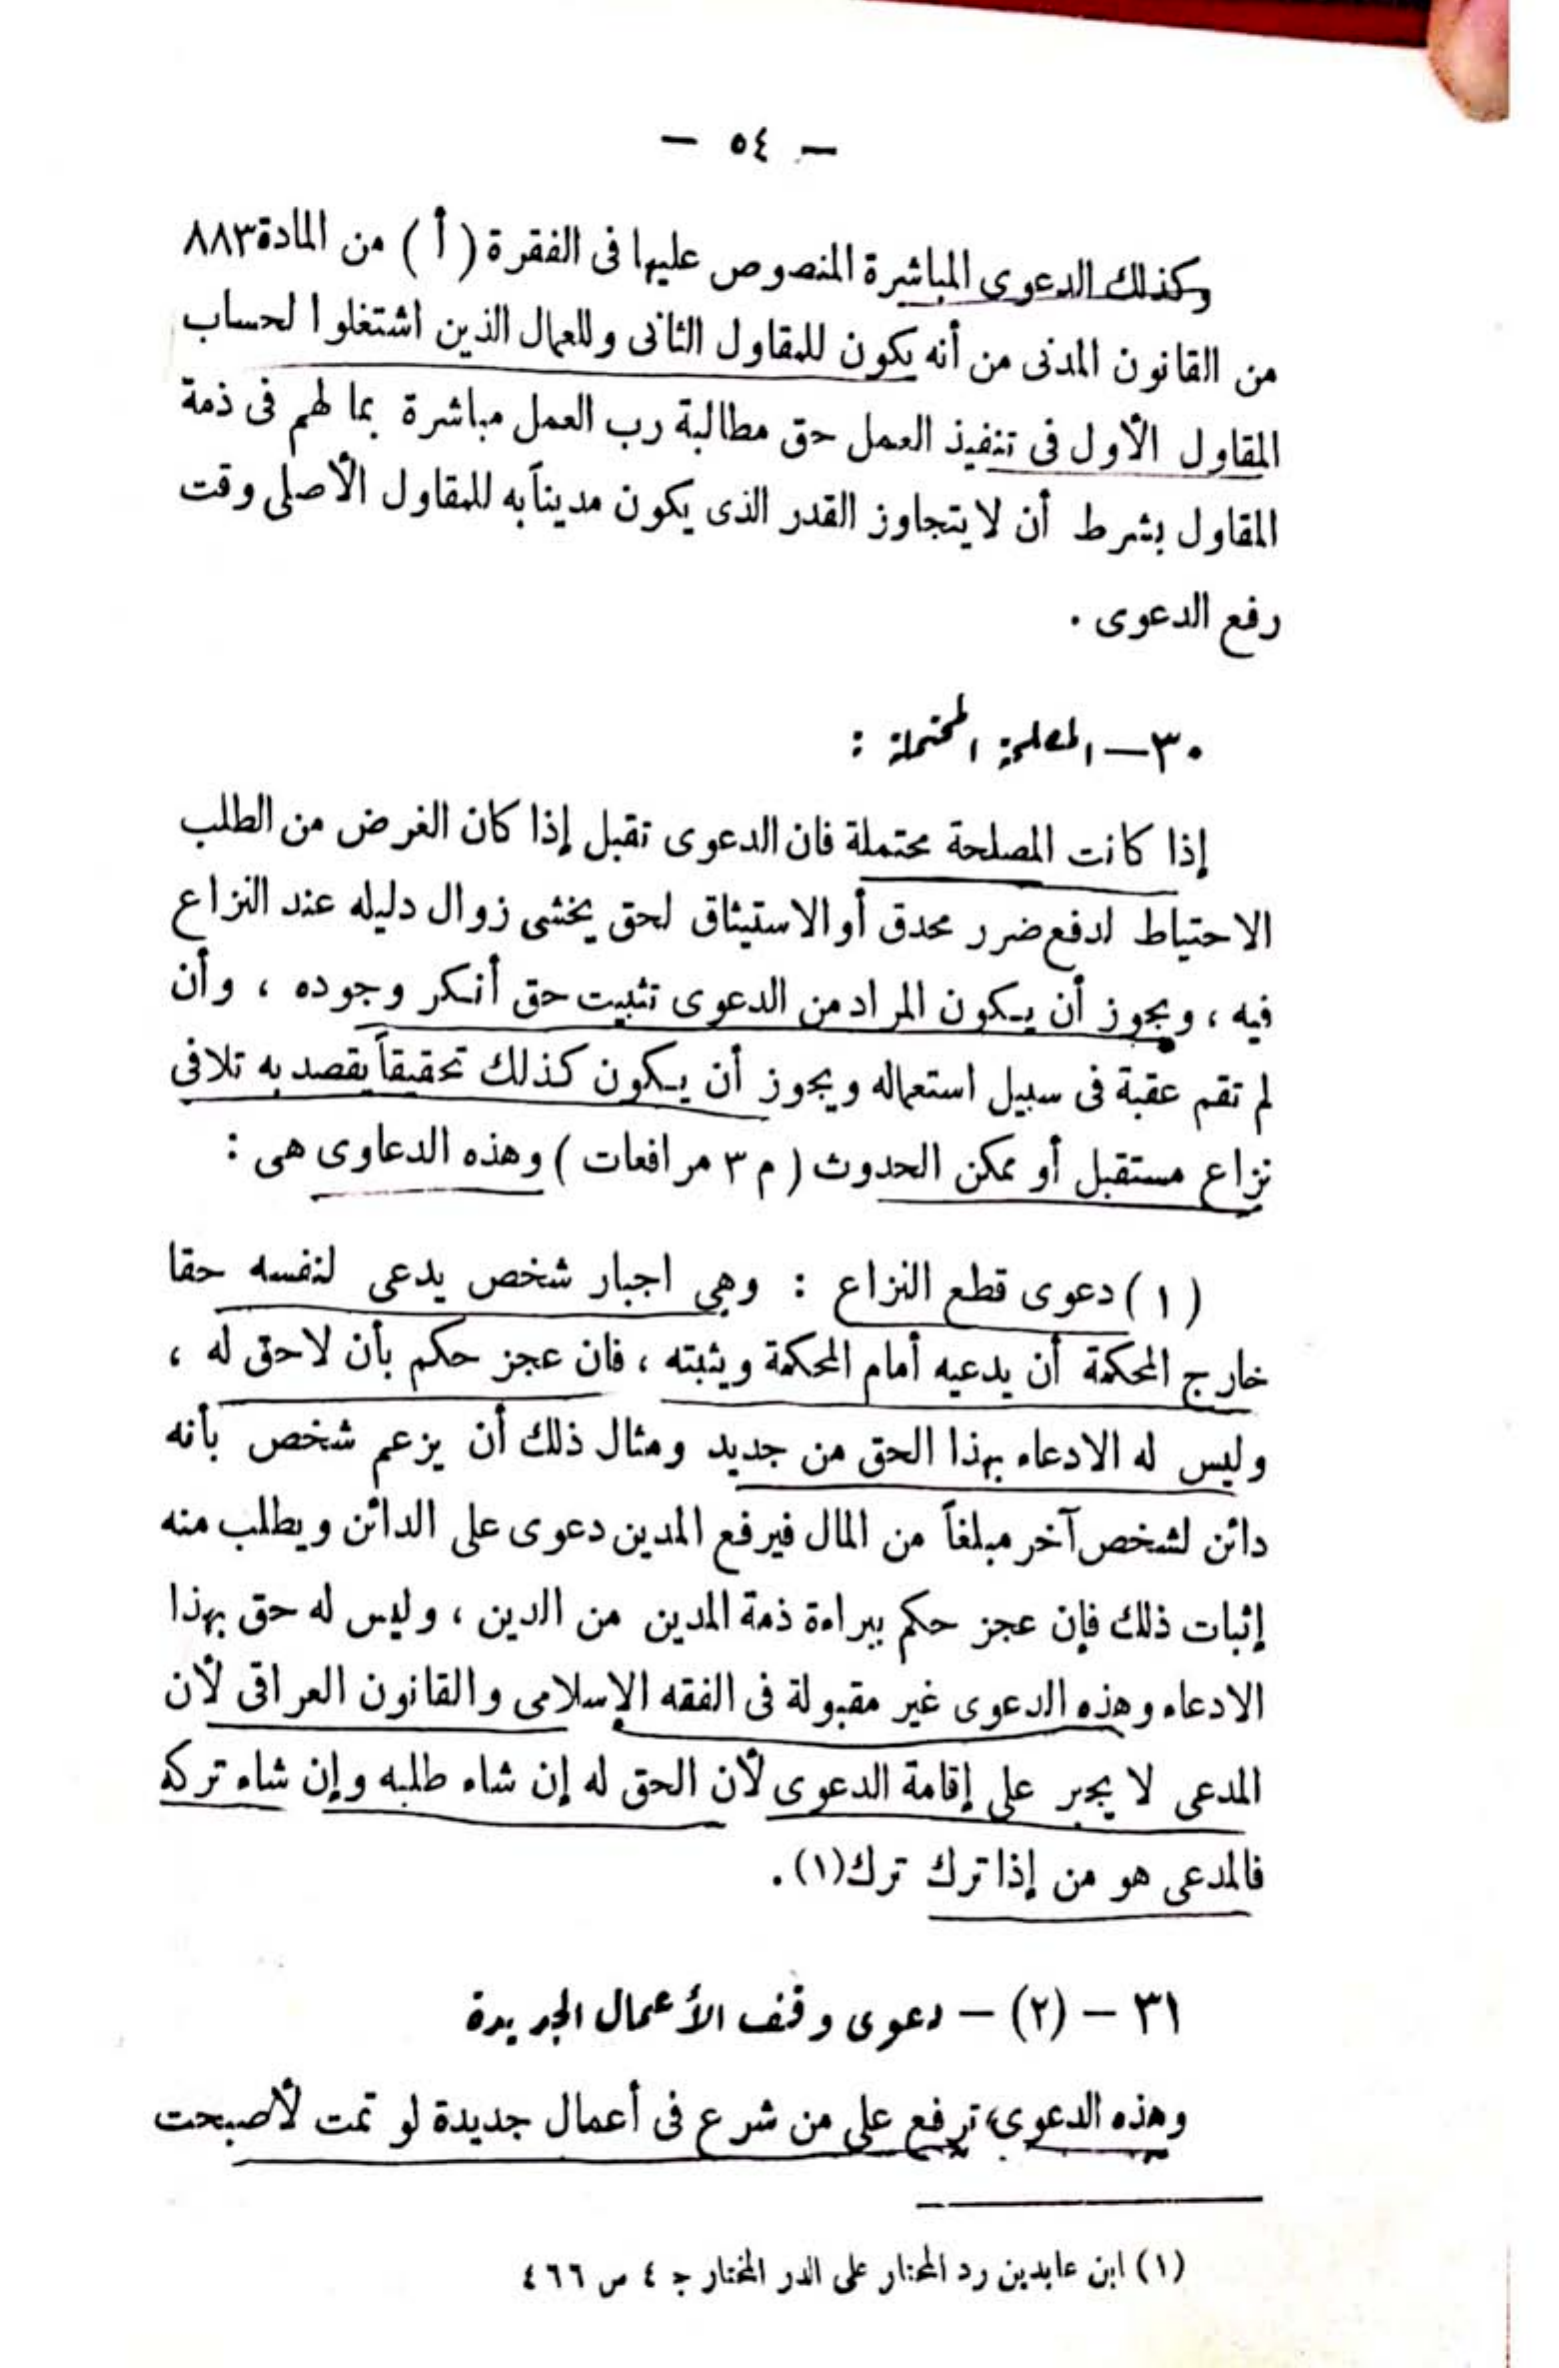 — ٥٤ —
وكذلك الدعوى المباشرة المنصوص عليها فى الفقرة ( أ ) من المادة ٨٨٣
من القانون المدنى من أنه يكون للمقاول الثانى وللعمال الذين اشتغلوا لحساب
المقاول الأول فى تنفيذ العمل حق مطالبة رب العمل مباشرة بما لهم فى ذمة
المقاول بشرط أن لا يتجاوز القدر الذى يكون مديناً به للمقاول الأصلى وقت
رفع الدعوى .
٣٠ — المصلحة المحتملة :
إذا كانت المصلحة محتملة فان الدعوى تقبل إذا كان الغرض من الطلب
الاحتياط لدفع ضرر محدق أو الاستيثاق لحق يخشى زوال دليله عند النزاع
فيه ، ويجوز أن يكون المراد من الدعوى تثبيت حق أنكر وجوده ، وأن
لم تقم عقبة فى سبيل استعماله ويجوز أن يكون كذلك تحقيقاً يقصد به تلافى
نزاع مستقبل أو ممكن الحدوث ( م ٣ مرافعات ) وهذه الدعاوى هى :
( ١ ) دعوى قطع النزاع : وهى اجبار شخص يدعى لنفسه حقا
خارج المحكمة أن يدعيه أمام المحكمة ويثبته ، فان عجز حكم بأن لا حق له ،
وليس له الادعاء بهذا الحق من جديد ومثال ذلك أن يزعم شخص بأنه
دائن لشخص آخر مبلغاً من المال فيرفع المدين دعوى على الدائن ويطلب منه
إثبات ذلك فإن عجز حكم ببراءة ذمة المدين من الدين ، وليس له حق بهذا
الادعاء وهذه الدعوى غير مقبولة فى الفقه الإسلامى والقانون العراقى لأن
المدعى لا يجبر على إقامة الدعوى لأن الحق له إن شاء طلبه وإن شاء تركه
فالمدعى هو من إذا ترك ترك(١) .
٣١ — (٢) — دعوى وقف الأعمال الجديدة
وهذه الدعوى، ترفع على من شرع فى أعمال جديدة لو تمت لأصبحت
(١) ابن عابدين رد المحتار على الدر المختار جـ ٤ ص ٤٦٦